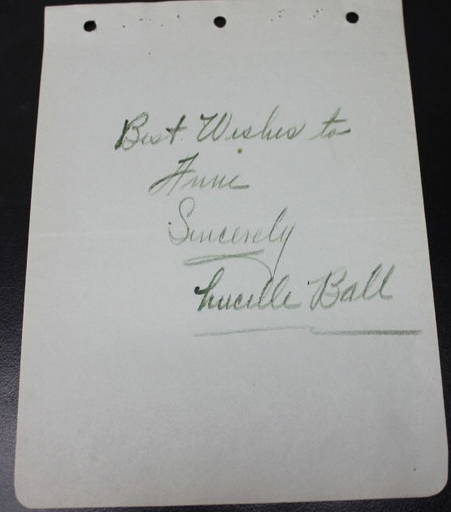 Best Wishes to
Anne
Sincerely
Lucille Ball